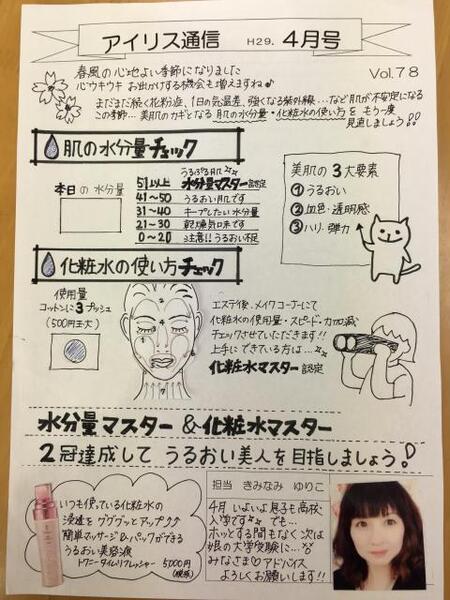 アイリス通信 H29. 4月号
Vol.78
春風の心地よい季節になりました
心ウキウキ お出かけする機会も増えますね♪
まだまだ続く花粉症、1日の気温差、強くなる紫外線…など肌が不安定になる
この季節… 美肌のカギとなる 肌の水分量・化粧水の使い方を もう一度
見直しましょう!!
肌の水分量チェック
本日の水分量
うるぷる肌
51以上 水分量マスター認定
41~50 うるおい肌です
31~40 キープしたい水分量
21~30 乾燥気味です
0~20 注意!!うるおい不足
美肌の3大要素
①うるおい
②血色・透明感
③ハリ・弾力
化粧水の使い方チェック
使用量
コットンに3プッシュ
(500円玉大)
エステ後、メイクコーナーにて
化粧水の使用量・スピード・力加減
チェックさせていただきます!!
上手にできている方は…
化粧水マスター認定
水分量マスター&化粧水マスター
2冠達成して うるおい美人を目指しましょう!
いつも使っている化粧水の
浸透をググググッとアップ
簡単マッサージ&パックができる
うるおい美容液
トワニータイムリフレッシャー 5000円
(税抜)
担当 きみなみ ゆりこ
4月 いよいよ息子も高校
入学です でも…
ホッとする間もなく 次は
娘の大学受験に…
みなさま アドバイス
よろしくお願いします!!